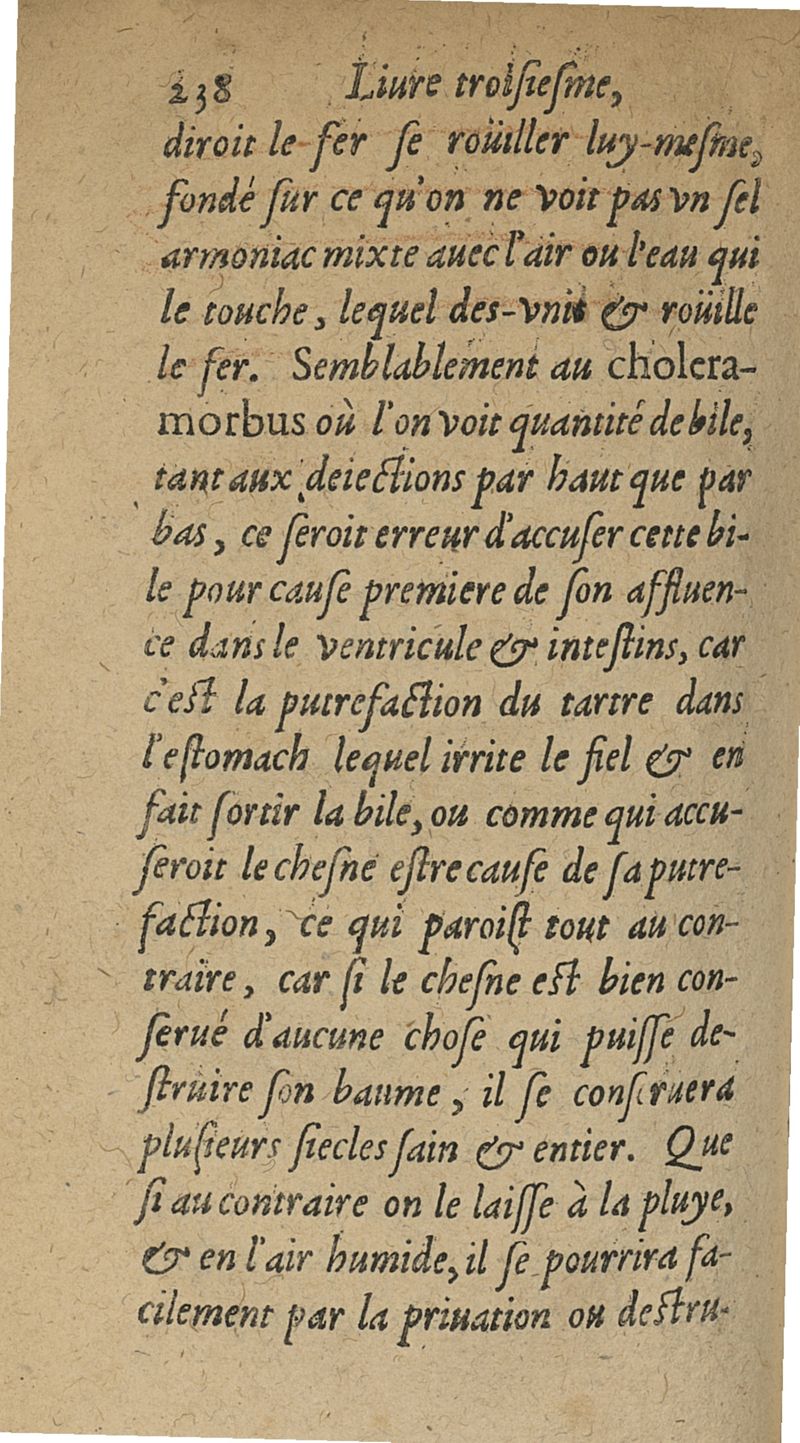 238 Liure troisiesme,
diroit le fer se roüiller luy-mesme,
fondé sur ce qu'on ne voit pas vn sel
armoniac mixte auec l'air ou l'eau qui
le touche, lequel des-vnit & roüille
le fer. Semblablement au cholera-
morbus où l'on voit quantité de bile,
tant aux deiections par haut que par
bas, ce seroit erreur d'accuser cette bi-
le pour cause premiere de son affluen-
ce dans le ventricule & intestins, car
c'est la putrefaction du tartre dans
l'estomach lequel irrite le fiel & en
fait sortir la bile, ou comme qui accu-
seroit le chesne estre cause de sa putre-
faction, ce qui paroist tout au con-
traire, car si le chesne est bien con-
serué d'aucune chose qui puisse de-
struire son baume, il se conseruera
plusieurs siecles sain & entier. Que
si au contraire on le laisse à la pluye,
& en l'air humide, il se pourrira fa-
cilement par la priuation ou destru-